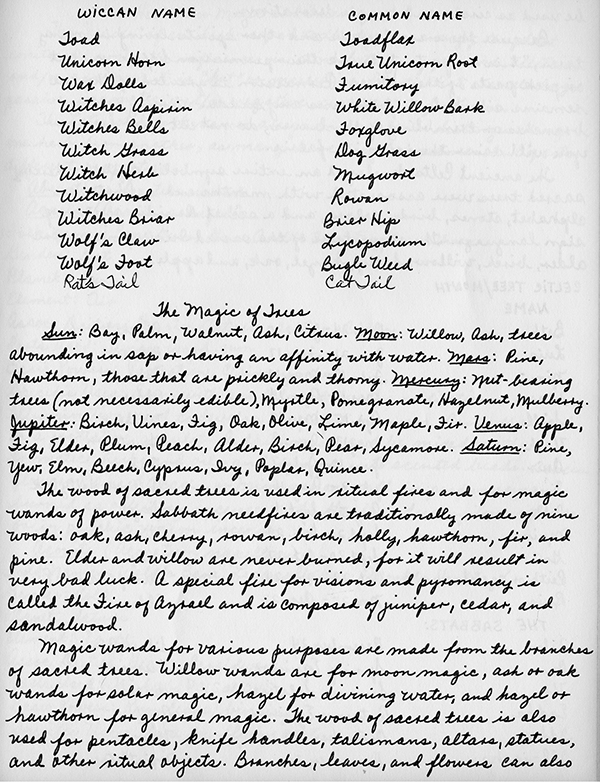 WICCAN NAME COMMON NAME
Toad Toadflax
Unicorn Horn True Unicorn Root
Wax Dolls Fumitory
Witches Aspirin White Willow Bark
Witches Bells Foxglove
Witch Grass Dog Grass
Witch Herb Mugwort
Witchwood Rowan
Witches Briar Brier Hip
Wolf's Claw Lycopodium
Wolf's Foot Bugle Weed
Rat's Tail Cat Tail
The Magic of Trees
Sun: Bay, Palm, Walnut, Ash, Citrus. Moon: Willow, Ash, trees
abounding in sap or having an affinity with water. Mars: Pine,
Hawthorn, those that are prickly and thorny. Mercury: Nut-bearing
trees (not necessarily edible), Myrtle, Pomegranate, Hazelnut, Mulberry.
Jupiter: Birch, Vines, Fig, Oak, Olive, Lime, Maple, Fir. Venus: Apple,
Fig, Elder, Plum, Peach, Alder, Birch, Pear, Sycamore. Saturn: Pine,
Yew, Elm, Beech, Cyprus, Ivy, Poplar, Quince.
The wood of sacred trees is used in ritual fires and for magic
wands of power. Sabbath needfires are traditionally made of nine
woods: oak, ash, cherry, rowan, birch, holly, hawthorn, fir, and
pine. Elder and willow are never burned, for it will result in
very bad luck. A special fire for visions and pyromancy is
called the Fire of Azrael and is composed of juniper, cedar, and
sandalwood.
Magic wands for various purposes are made from the branches
of sacred trees. Willow wands are for moon magic, ash or oak
wands for solar magic, hazel for divining water, and hazel or
hawthorn for general magic. The wood of sacred trees is also
used for pentacles, knife handles, talismans, altars, statues,
and other ritual objects. Branches, leaves, and flowers can also